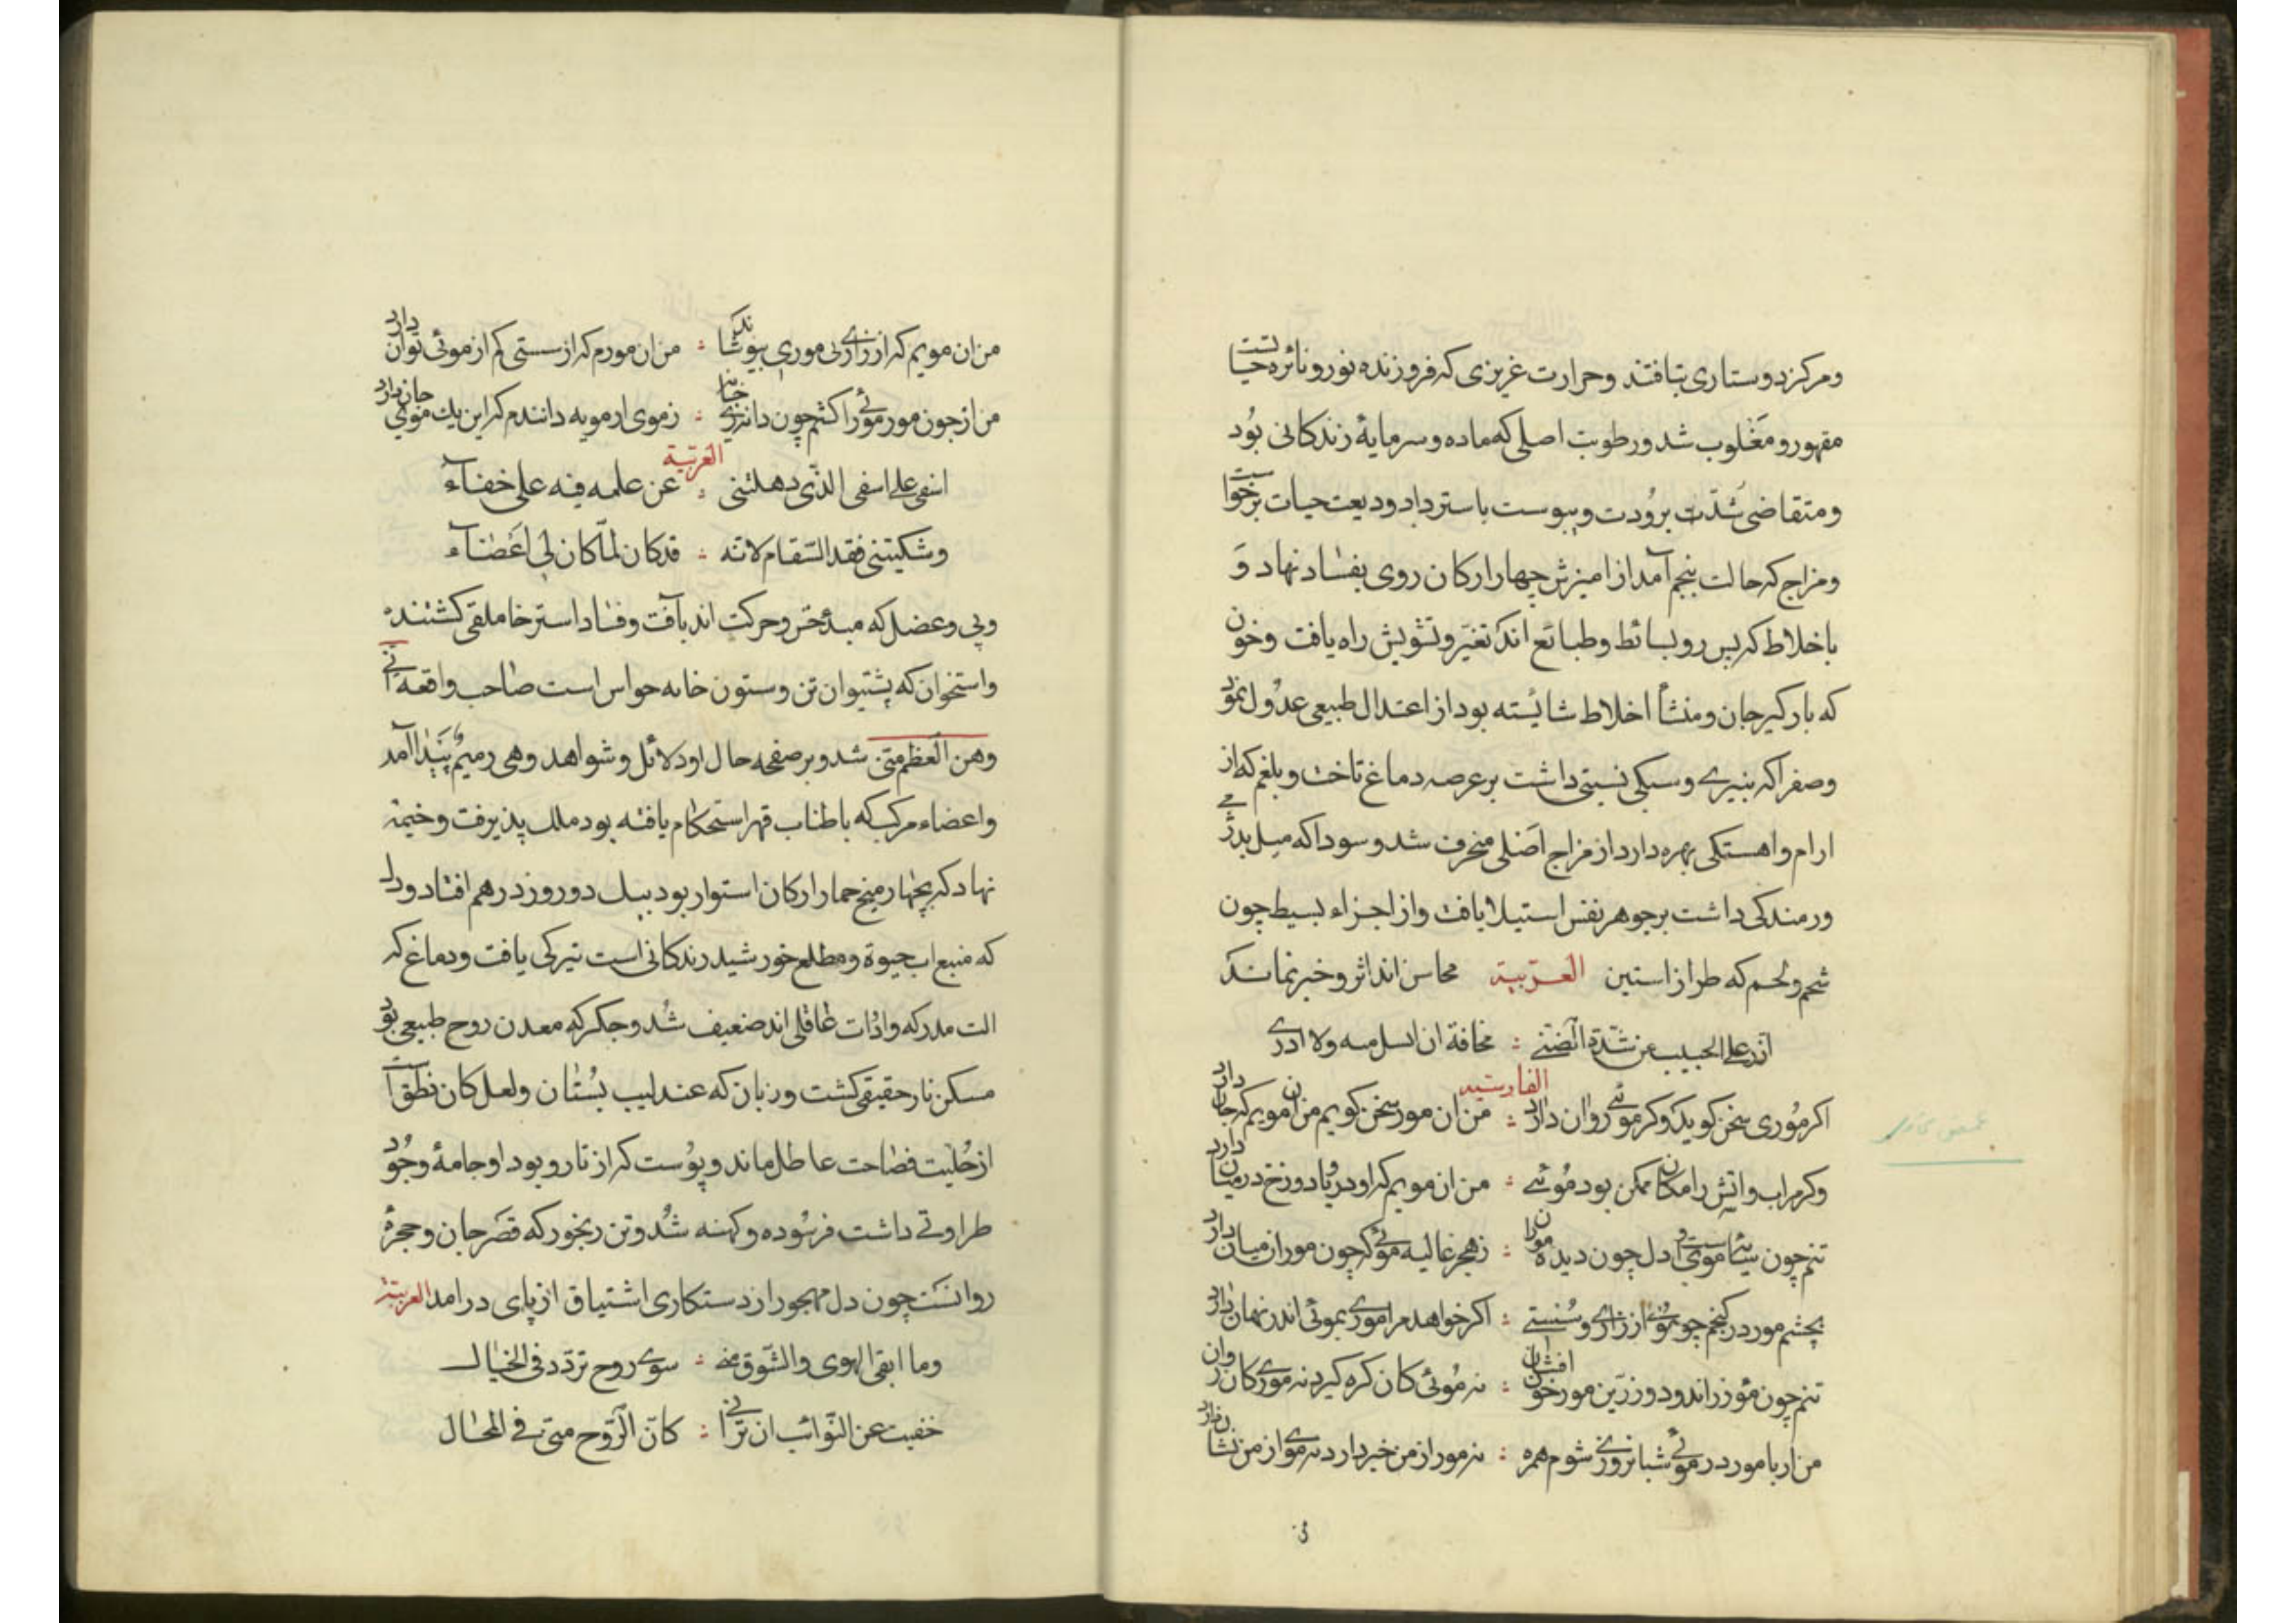 ومرکز دوستاری بتافتند وحرارت غریزی که فروزنده نور ونائره حیاتست
مقهور ومغلوب شد ورطوبت اصلی که ماده وسرمایهٔ زندکانی بُود
ومتقاضی شدّت برُودت ویبوست باسترداد ودیعت حیات برخواست
ومزاج که حالت پنجم آمد از امیزش چهار ارکان روی بفساد نهاد وَ
باخلاط که پس رو بسائط وطبائع اند تغیّر وتشویش راه یافت وخون
که بارکیر جان ومنشأ اخلاط شائسته بود از اعتدال طبیعی عدُول نمود
وصفرا که بتیزی وسبکی نسبتی داشت بر عرصه دماغ تاخت وبلغم که از
ارام واهستکی بهره دارد از مزاج اصلی منحرف شد وسودا که میل بدژمی
ورمندکی داشت بر جوهر نفس استیلا یافت واز اجزاء بسیط چون
شحم ولحم که طراز استین العربیة محاسن اند اثر وخبر نماند
اذر علی الحبیب عن شدة الضنی : مخافة ان اسل منه ولا ادری
الفارسیه
اکر مُوری سخن کوید وکر موئی روان دارد : من ان مور سخن کویم من ان مویم که جان دارد
وکر مر اب واتش را مکان ممکن بود موئی : من ان مویم که او دریا ودوزخ در میان دارد
تنم چون سایهٔ مویست ودل چون دیده موران : زهجر غالیه موئی که چون موران میان دارد
بچشم مور در کنجم چو موئی از زاری وسُستی : اکر خواهد مرا موری بموئی اندر نهان دارد
تنم چون مو زر اندود و زرین مور خون افشان : نه موئی کان کره کیرد نه موری کان روان
من ار با مور در موئی شبانروزی شوم همره : نه مور از من خبر دارد نه موی از من نشان دارد
من ان مویم که از زاری بی موری بپوشاند : من ان مورم که از سستی کم از موئی توان دارد
من از جون مور موئی را کشم چون دانه زی خانه : زموی ار مویه دانندم که این یك موئی جان دارد
العربیة
اسفی علی اسفی الذی دهلتنی : عن علمه فیه علی خفآء
وشکیتنی فقد السّقام لانه : قد کان لمّا کان لی اعَضآء
وپی وعضل که مبدء حس وحرکت اند بآفت وفساد استرخا ملقی کشتند
واستخوان که پشتیوان تن وستون خانه حواس است صاحب واقعه انّی
وهن العظم منّی شد وبر صفحه حال او دلائل وشواهد وهی رمیم پَیدا آمد
واعضاء مرکب که باطناب قهر استحکام یافته بود ملل پذیرفت وخیمهٔ
نهاد که بچهار میخ چهار ارکان استوار بود بیك دو روز در هم افتاد ودل
که منبع اب حیوة ومطلع خورشید زندکانی است تیرکی یافت ودماغ که
الت مدرکه واذات عاقلی اند ضعیف شُد وجکر که معدن روح طبیعی بود
مسکن نار حقیقی کشت وزبان که عندلیب بُستان ولعل کان نطق است
از حُلیت فصاحت عاطل ماند وپوُست که از تار وپود او جامهٔ وجُود
طراوتی داشت فرسُوده وکهنه شُد وتن رنجور که قصَر جان وحجرهٔ
روانست چون دل مهجور از دستکاری اشتیاق از پای درامد العربیة
وما ابقی الهوی والشّوق منی : سوی روح تردّد فی الخیال
خفیت عن النّوائب ان ترانی : کانّ الرّوح منّی فی المحال